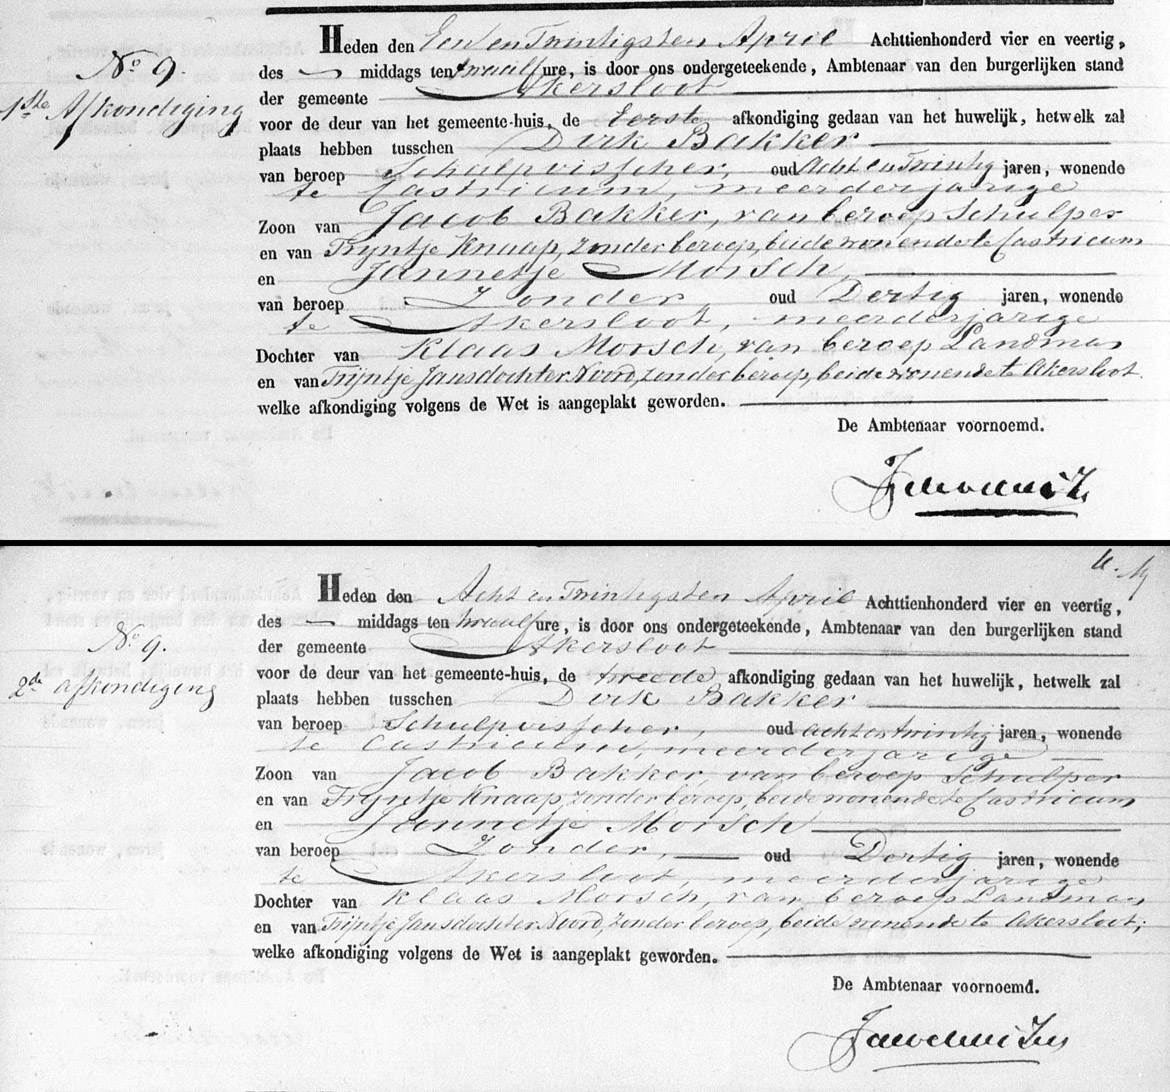 No. 9
1ste Afkondiging
Heden den Een en Twintigsten April Achttienhonderd vier en veertig,
des — middags ten twaalf ure, is door ons ondergeteekende, Ambtenaar van den burgerlijken stand
der gemeente Akersloot
voor de deur van het gemeente-huis, de Eerste afkondiging gedaan van het huwelijk, hetwelk zal
plaats hebben tusschen Dirk Bakker
van beroep Schulpvisscher, oud Acht en Twintig jaren, wonende
te Castricum, meerderjarige
Zoon van Jacob Bakker, van beroep Schulper
en van Tryntje Knaap, zonder beroep, beide wonende te Castricum
en Jannetje Morsch,
van beroep Zonder, oud Dertig jaren, wonende
te Akersloot, meerderjarige
Dochter van Klaas Morsch, van beroep Landman
en van Trijntje Jansdochter Noord, zonder beroep, beide wonende te Akersloot.
welke afkondiging volgens de Wet is aangeplakt geworden.
De Ambtenaar voornoemd.
No. 9.
2de afkondiging
Heden den Acht en Twintigsten April Achttienhonderd vier en veertig,
des — middags ten twaalf ure, is door ons ondergeteekende, Ambtenaar van den burgerlijken stand
der gemeente Akersloot
voor de deur van het gemeente-huis, de tweede afkondiging gedaan van het huwelijk, hetwelk zal
plaats hebben tusschen Dirk Bakker
van beroep Schulpvisscher, oud acht en twintig jaren, wonende
te Castricum meerderjarige
Zoon van Jacob Bakker, van beroep Schulper
en van Tryntje Knaap, zonder beroep, beide wonende te Castricum
en Jannetje Morsch
van beroep Zonder, oud Dertig jaren, wonende
te Akersloot, meerderjarige
Dochter van Klaas Morsch, van beroep Landman
en van Trijntje Jansdochter Noord, zonder beroep, beide wonende te Akersloot;
welke afkondiging volgens de Wet is aangeplakt geworden.
De Ambtenaar voornoemd.